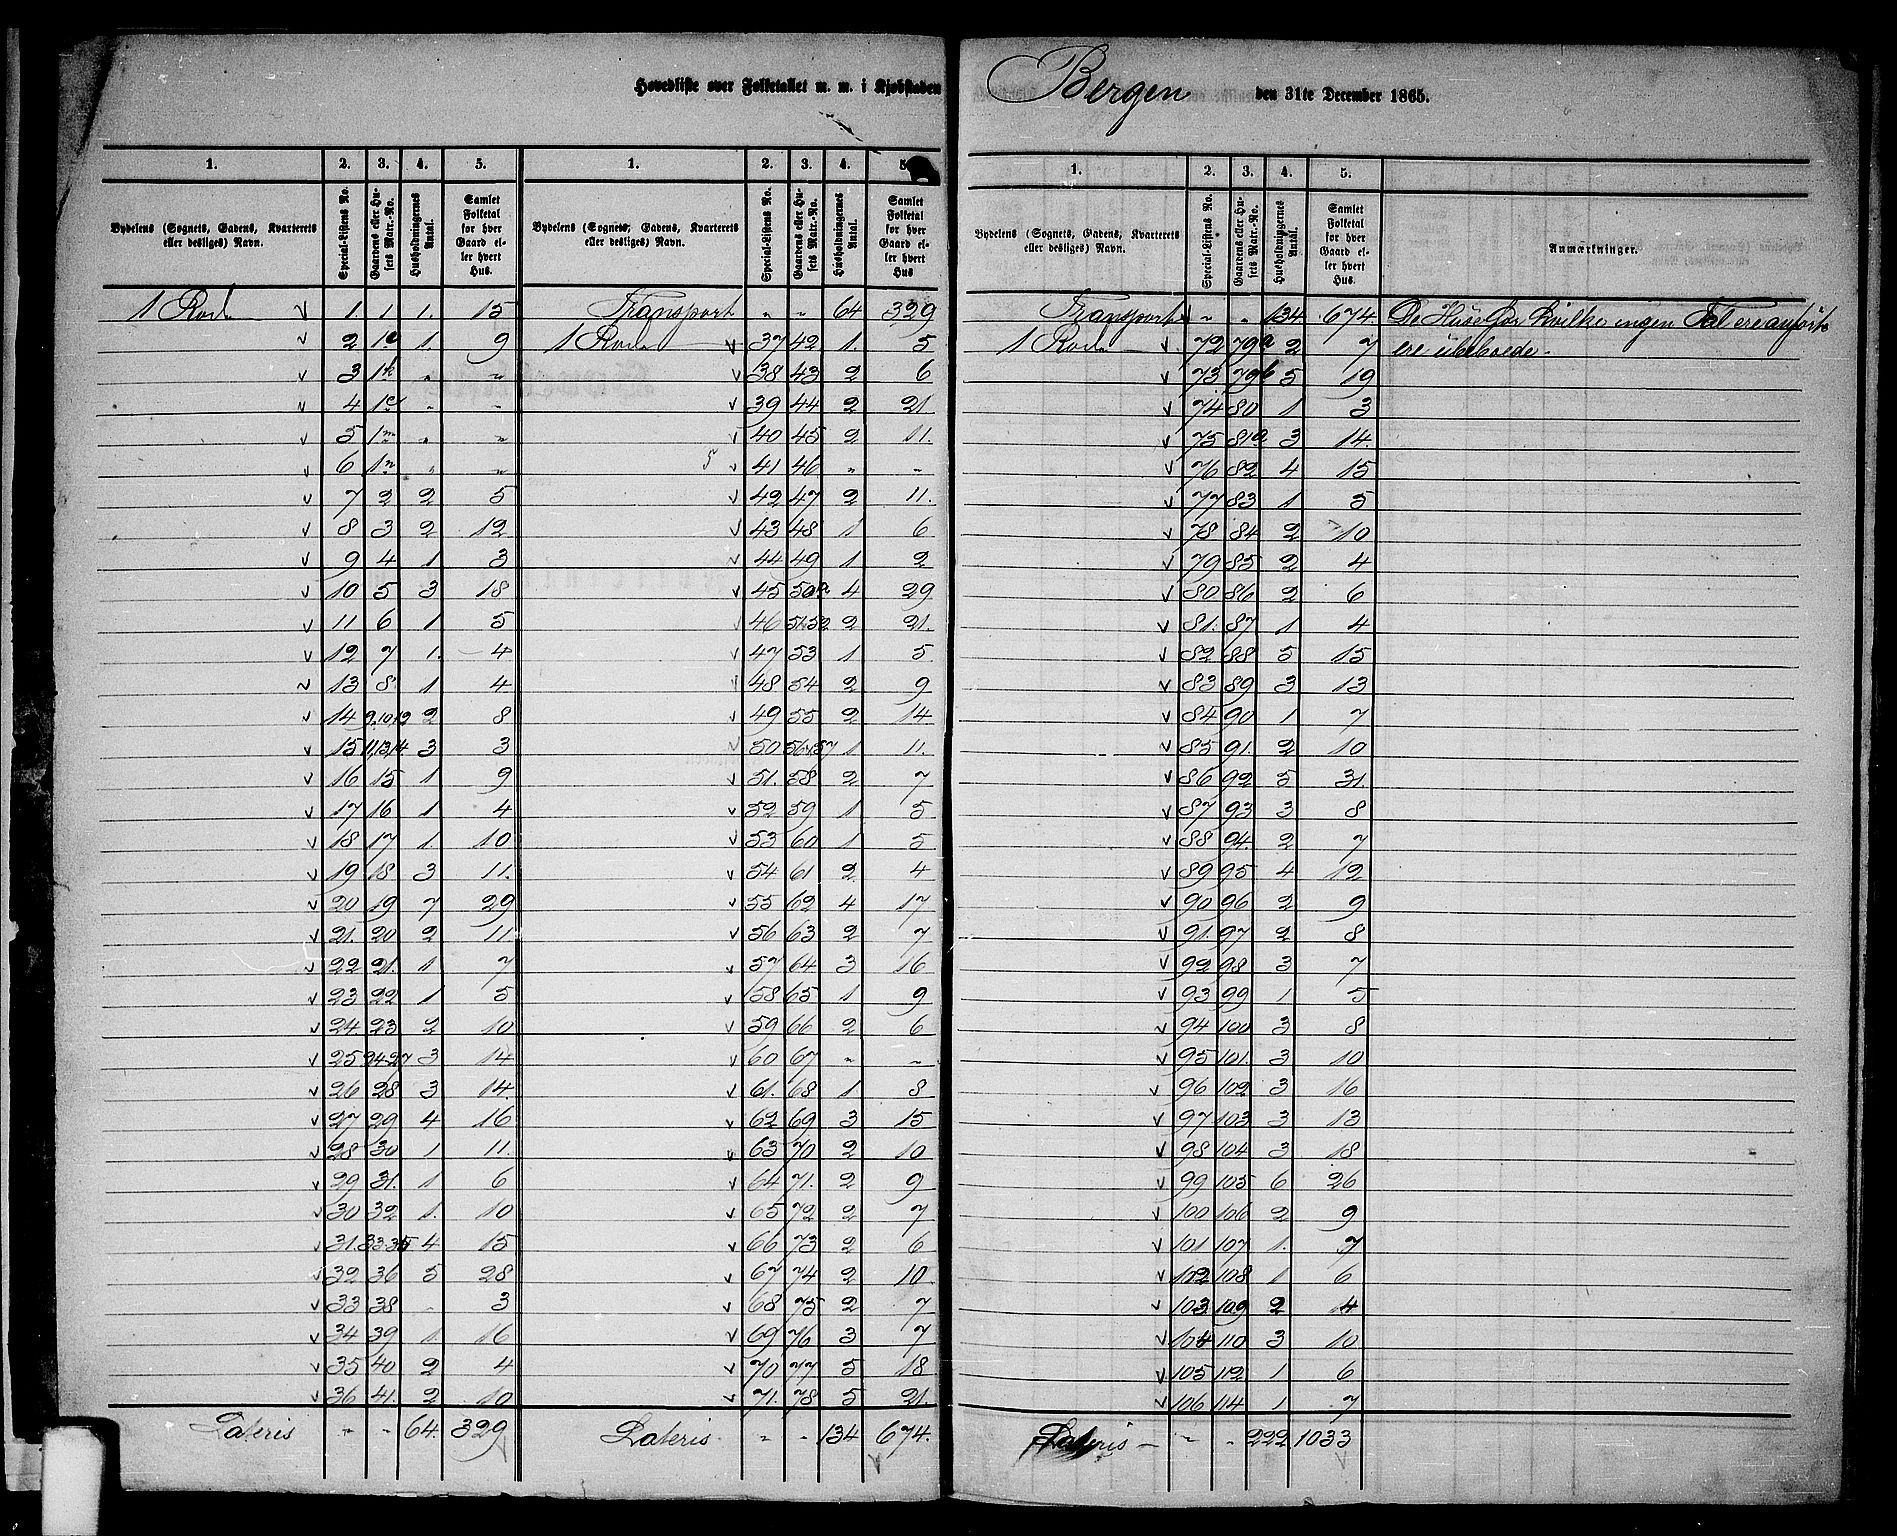 Hovedliste over Folketallet m. m. i Kjøbstaden Bergen den 31te December 1865.
1. 2. 3. 4. 5. 1. 2. 3. 4. 5.
Bydelens (Sognets, Gadens, Kvarterets eller desliges) Navn. Special-Listens No. Gaardens eller Husets Matr.-No. Husholdningernes Antal. Samlet Folketal for hver Gaard eller hvert Hus. Bydelens (Sognets, Gadens, Kvarterets eller desliges) Navn. Special-Listens No. Gaardens eller Husets Matr.-No. Husholdningernes Antal. Samlet Folketal for hver Gaard eller hvert Hus
1 Rode 1. 1 1. 15 Transport " " 64 329
2 1 9 1 Rode 37 42 1. 5
3 1k " " 38 43 2 6
4 " " 39 44 2 21
5 1m " " 40 45 2 11.
6 1n " " 41 46 " "
7 2 2 5 42 47 2 11.
8 3 2 12 43 48 1 6
9 4 1 3 44 49 1 2
10 5 3 18 45 50 4 29
11 6 1 5 46 51.52 2 21.
12 7 1. 4 47 53 1 5
13 8 1 4 48 54 2 9
14 9.10.12 2 8 49 55 2 14
15 11.13.14 3 3 50 1 11.
16 15 1 9 51. 58 2 7
17 16 1 4 52 59 1 5
18 17 1. 10 53 60 1 5
19 18 3 11. 54 61 2 4
20 19 7 29 55 62 4 17
21. 20 2 11 56 63 2 7
22 21. 1 7 57 64 3 16
23 22 1 5 58 65 1 9
24 23 2 10 59 66 2 6
25 24-27 3 14 60 67 " "
26 28 3 14. 61. 68 1 8
27 29 4 16 62 69 3 15
28 30 1 11. 63 70 2 10
29 31. 1 6 64 71. 2 9
30 32 1. 10 65 72 2 7
31. 33-35 4 15 66 73 2 6
32 36 5 28 67 74 2 10
33 38 " 3 68 75 2 7
34 39 1. 16 69 76 3 7
35 40 2 4 70 77 5 18
36 41. 2 10 71. 78 5 21.
Lateris " " 64. 329 Lateris " " 134 674.
1. 2. 3. 4. 5.
Bydelens (Sognets, Gadens, Kvarterets eller desliges) Navn. Special-Listens No. Gaardens eller Husets Matr.-No. Husholdningernes Antal. Samlet Folketal for hver Gaard eller hvert Hus. Anmærkninger.
Transport " " 134 674 De Huse for hvilke ingen Tal ere anførte
1 Rode 72 79a 2 7 ere ubeboede.
73. 79b 5 19
74 80 1 3
75 81a 3 14
76 82 4 15
77 83 1 5
78 84 2 10
79 85 2 4
80 86 2 6
81. 87 1 4
82 88 5 15
83 89 3 13
84 90 1 7
85 91. 2 10
86 92 5 31.
87 93 3 8
88 94. 2 7
89 95 4 12
90 96 2 9
91. 97 2 8
92 98 3 7
93 99 1 5
94 100 3 8
95 101. 3 10
96 102 3 16
97 103 3 13
98 104 3 18
99 105 6 26
100 106 2 9
101 107 1. 7
102 108 1 6
103 109 2 14
104 110 3 10
105 112 1 6
106 114 1 7
Lateris " " 222 1033